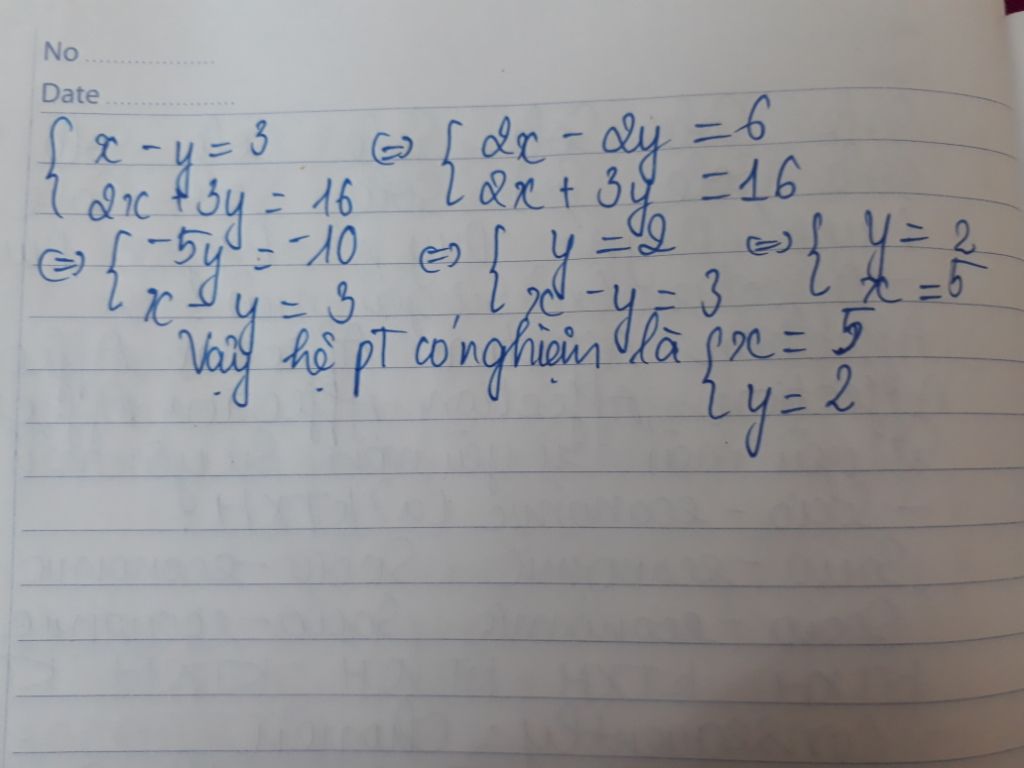 No ..................
Date ..................
{ x - y = 3 ⇔ { 2x - 2y = 6
2x + 3y = 16 2x + 3y = 16
⇔ { -5y = -10 ⇔ { y = 2 ⇔ { y = 2
x - y = 3 x - y = 3 x = 5
Vậy hệ PT có nghiệm là { x = 5
y = 2